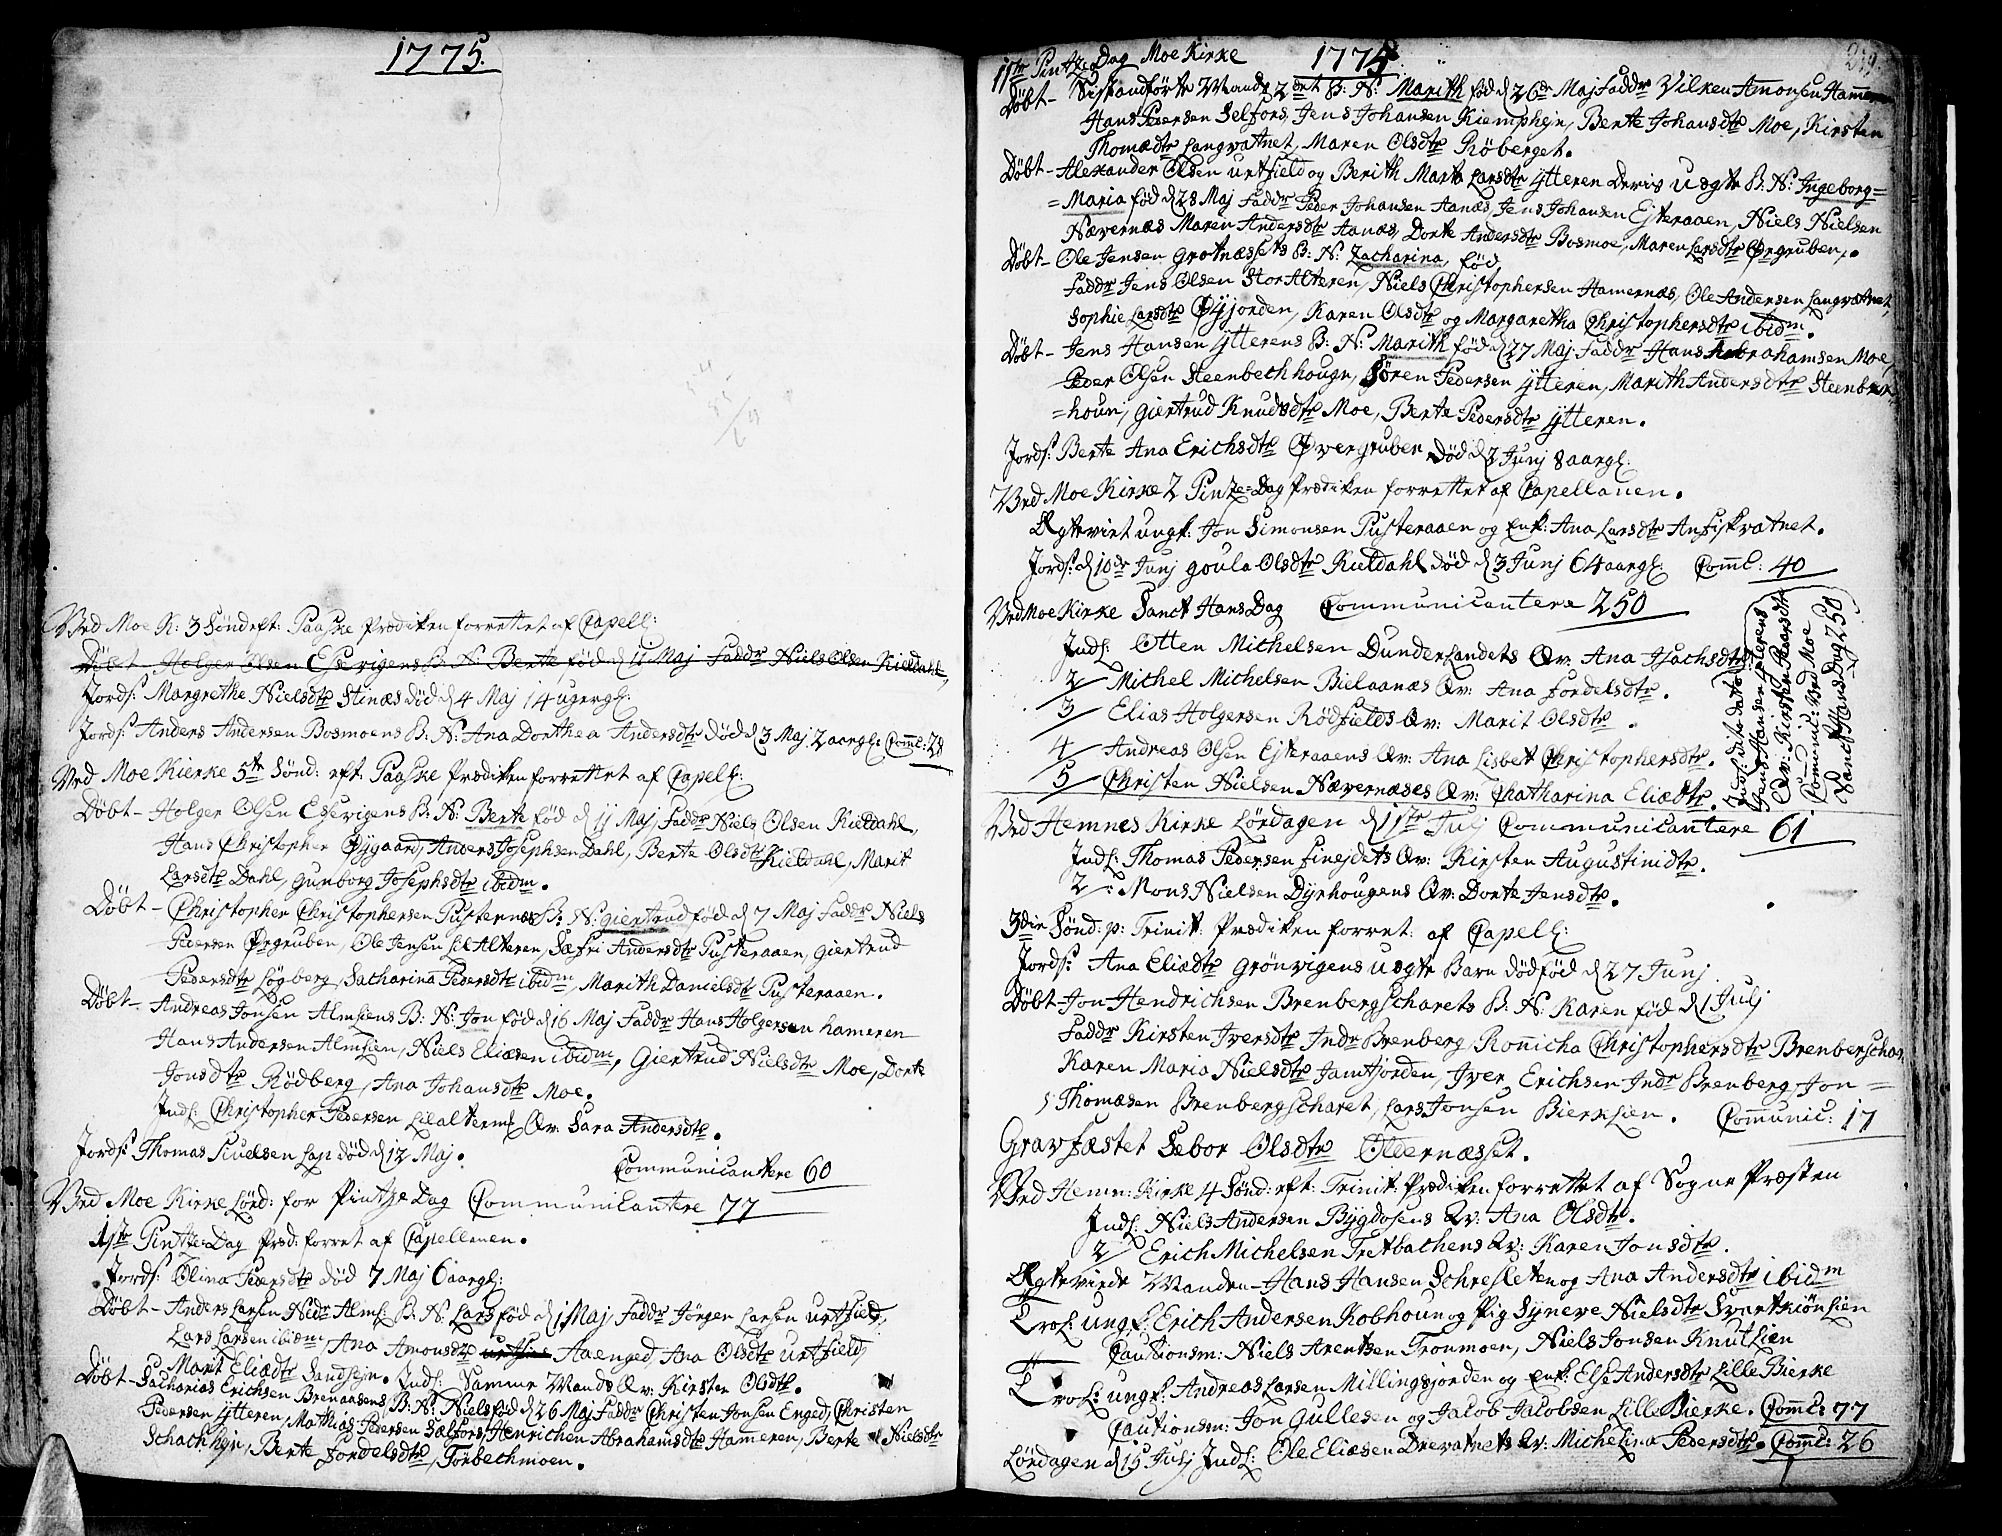 1775.
Ved Moe K: 3 Sönd eft: Paaske Prædiken forrettet af Capell:
Döbt Holger Olsen Eseviigens B: N: Berte född 11 Maj Faddr Niels Olsen Kieldahl,
Jords: Margrethe Nielsdtr Stinæs död d 4 Maj 14 ugergl:
Jords: Anders Andersen Bosmoens B: N: Ana Dorthea Andersdtr död d 3 Maj 2 aargl: Com̄: 28
Ved Moe Kierke 5te Sönd: eft: Paaske Prædiken forrettet af Capell:
Döbt - Holger Olsen Eseviigens B: N: Berte föd d 11 Maj Faddr Niels Olsen Kieldahl,
Hans Christopher Öygaard, Anders Josephsen Dahl, Berte Olsdtr Kieldahl, Marit
Larsdtr Dahl, Gunborg Josephsdtr ibidm.
Döbt - Christopher Christophersen Pusternes B: N: Giertrud föd d 7 Maj Faddr Niels
Pedersen Örgruben, Ole Jensen Lilalteren, Sæfri Andersdtr Pusteraaen, Giertrud
Pedersdtr Løgberg, Sacharina Pedersdtr ibidm, Marith Danielsdtr Pusteraaen.
Döbt - Andreas Jonsen Almliens B: N: Jon föd d 16 Maj Faddr Hans Holgersen Hameren
Hans Andersen Almlien, Niels Eliæsen ibidm, Giertrud Nielsdtr Moe, Dorte
Jonsdtr Rödberg, Ana Johansdtr Moe.
Indl: Christopher Pedersen Lilalterens Qv: Sara Andersdtr.
Jords: Thomas Siuelsen Lap död d 12 Maj. Communicantere 60
Ved Moe Kirke Lörd: for Pintze Dag Communicantere 77
1ste Pintze-Dag Præd: forret af Capellanen.
Jords: Olina Pedersdtr död 7 Maj 6 aargl:
Döbt - Anders Larsen Nedr Alml: B: N: Lars föd d 1 Maj Faddr Jörgen Larsen Urtfield,
Lars Larsen ibidm, Ana Amonsdtr Aaenged, Ana Olsdtr Urtfield,
Marit Eliædtr Sandhejn. Indl: Samme Mands Qv: Kirsten Olsdtr.
Döbt - Sacharias Erichsen Brenaasens B: N: Niels föd d 26 Maj Faddr Christen Jonsen Enged, Christen
Pedersen Ytteren, Mathias Pedersen Sælfors, Henrichen Abrahamsdtr Hameren, Berte Nielsdtr
Schachhejn, Berte Fordelsdtr, Forbechmoen.
1775
1ste Pintze Dag Moe Kirke
Döbt - Sistandförte Mands 2det B: N: Marith föd d 26de Maj Faddr Vilken Amonsen Hameren
Hans Pedersen Selfors, Jens Johansen Kiemphejn, Berte Johansdtr Moe, Kirsten
Thomædtr Langvatnet, Maren Olsdtr Röberget.
Döbt - Alexander Olsen Urtfield og Berith Marta Larsdtr Ytteren Deris Uægte B: N: Ingeborg=
=Maria föd d 28 Maj Faddr Peder Johansen Aanæs, Jens Johansen Ejteraaen, Niels Nielsen
Nævernæs Maren Andersdtr Aanæs, Dorte Andersdtr Bosmoe, Maren Larsdtr Örgruben.
Döbt - Ole Jensen Grotnæssets B: N: Zacharina, föd
Faddr Jens Olsen Stor Alteren, Niels Christophersen Hamernæs, Ole Andersen Langvatnet,
Sophie Larsdtr Öyjorden, Karen Olsdtr og Margaretha Christophersdtr ibidm.
Döbt - Jens Hansen Ytterens B: N: Marith föd d 27 Maj Faddr Hans Abrahamsen Moe,
Peder Olsen Steenbechhougn, Sören Pedersen Ytteren, Marith Andersdtr Steenbech
=houn, Giertrud Knudsdtr Moe, Berte Pedersdtr Ytteren.
Jords: Berte Ana Erichsdtr Övergruben död d 2 Junj 8 aargl:
Ved Moe Kirke 2 Pintze-Dag Prædiken forrettet af Capellanen.
Ægteviet Ungk: Jon Simonsen Pusteraaen og Enk: Ana Larsdtr Anfiskvatnet.
Jords: d 10de Junj Goula Olsdtr Kieldahl död d 3 Junj 64 aargl: Com̄: 40
Ved Moe Kirke Sanct Hans Dag Communicantere 250
Indl: Otten Michelsen Dunderlandets Qv: Ana Isachsdtr
2 Michel Michelsen Bielaanæs Qv: Ana Fordelsdtr.
3 Elias Holgersen Rödfields Qv: Marit Olsdtr.
4 Andreas Olsen Ejteraaens Qv: Ana Lisbet Christophersdtr.
5 Christen Nielsen Nævernæses Qv: Chatharina Eliædtr.
Indl: dito dato
Jens Hansen Ytterens
Qv: Kirsten
Comunic: Ved Moe
Sanct Hans Dag 250
Ved Hemnes Kirke Lördagen d 1ste Julj Communicantere 61
Indl: Thomas Pedersen Finejdets Qv: Kirsten Augustinidtr.
2: Mons Nielsen Dyrhougens Qv: Dorte Jensdtr.
3die Sönd: p: Trinit: Prædiken forret: af Capell:
Jords: Ana Eliædtr Grönvigens Uægte Barn dödföd d 27 Junj
Döbt - Jon Hendrichsen Brenbergscharets B: N: Karen föd d 1 Julj
Faddr Kirsten Iversdtr Indr Brenberg, Ronicha Christophersdtr Brenbergschar,
Karen Maria Nielsdtr Jamtjorden, Iver Erichsen Indr Brenberg, Jon =
Thomæsen Brenbergscharet, Lars Jonsen Bierklien. Communic: 17
Gravfæstet Sebor Olsdtr Oldernæsset.
Ved Hemn: Kirke 4 Sönd: eft: Trinit: Prædiken forrettet af Sogne Præsten
Indl: Niels Andersen Bÿgdosens Qv: Ana Olsdtr.
2 Erich Michelsen Tretbachens Qv: Karen Jonsdtr.
Ægteviede Manden Hans Hansen Schresletten og Ana Andersdtr ibidm
Trol: Ungk: Erich Andersen Kobhoun og Pig Syneve Nielsdtr Svartkiönlien
Cautionsm: Niels Arentsen Tronmoen, Niels Jonsen Knutlien
Trol: Ungk: Andreas Larsen Millingsjorden og Enk: Else Andersdtr Lille Bierke
Cautionsm: Jon Gullesen og Jacob Jacobsen Lille Bierke. Com̄: 77
Lördagen d 15 Julj Indl: Ole Eliæsen Drevatnets Qv: Michelina Pedersdtr. Com̄: 26